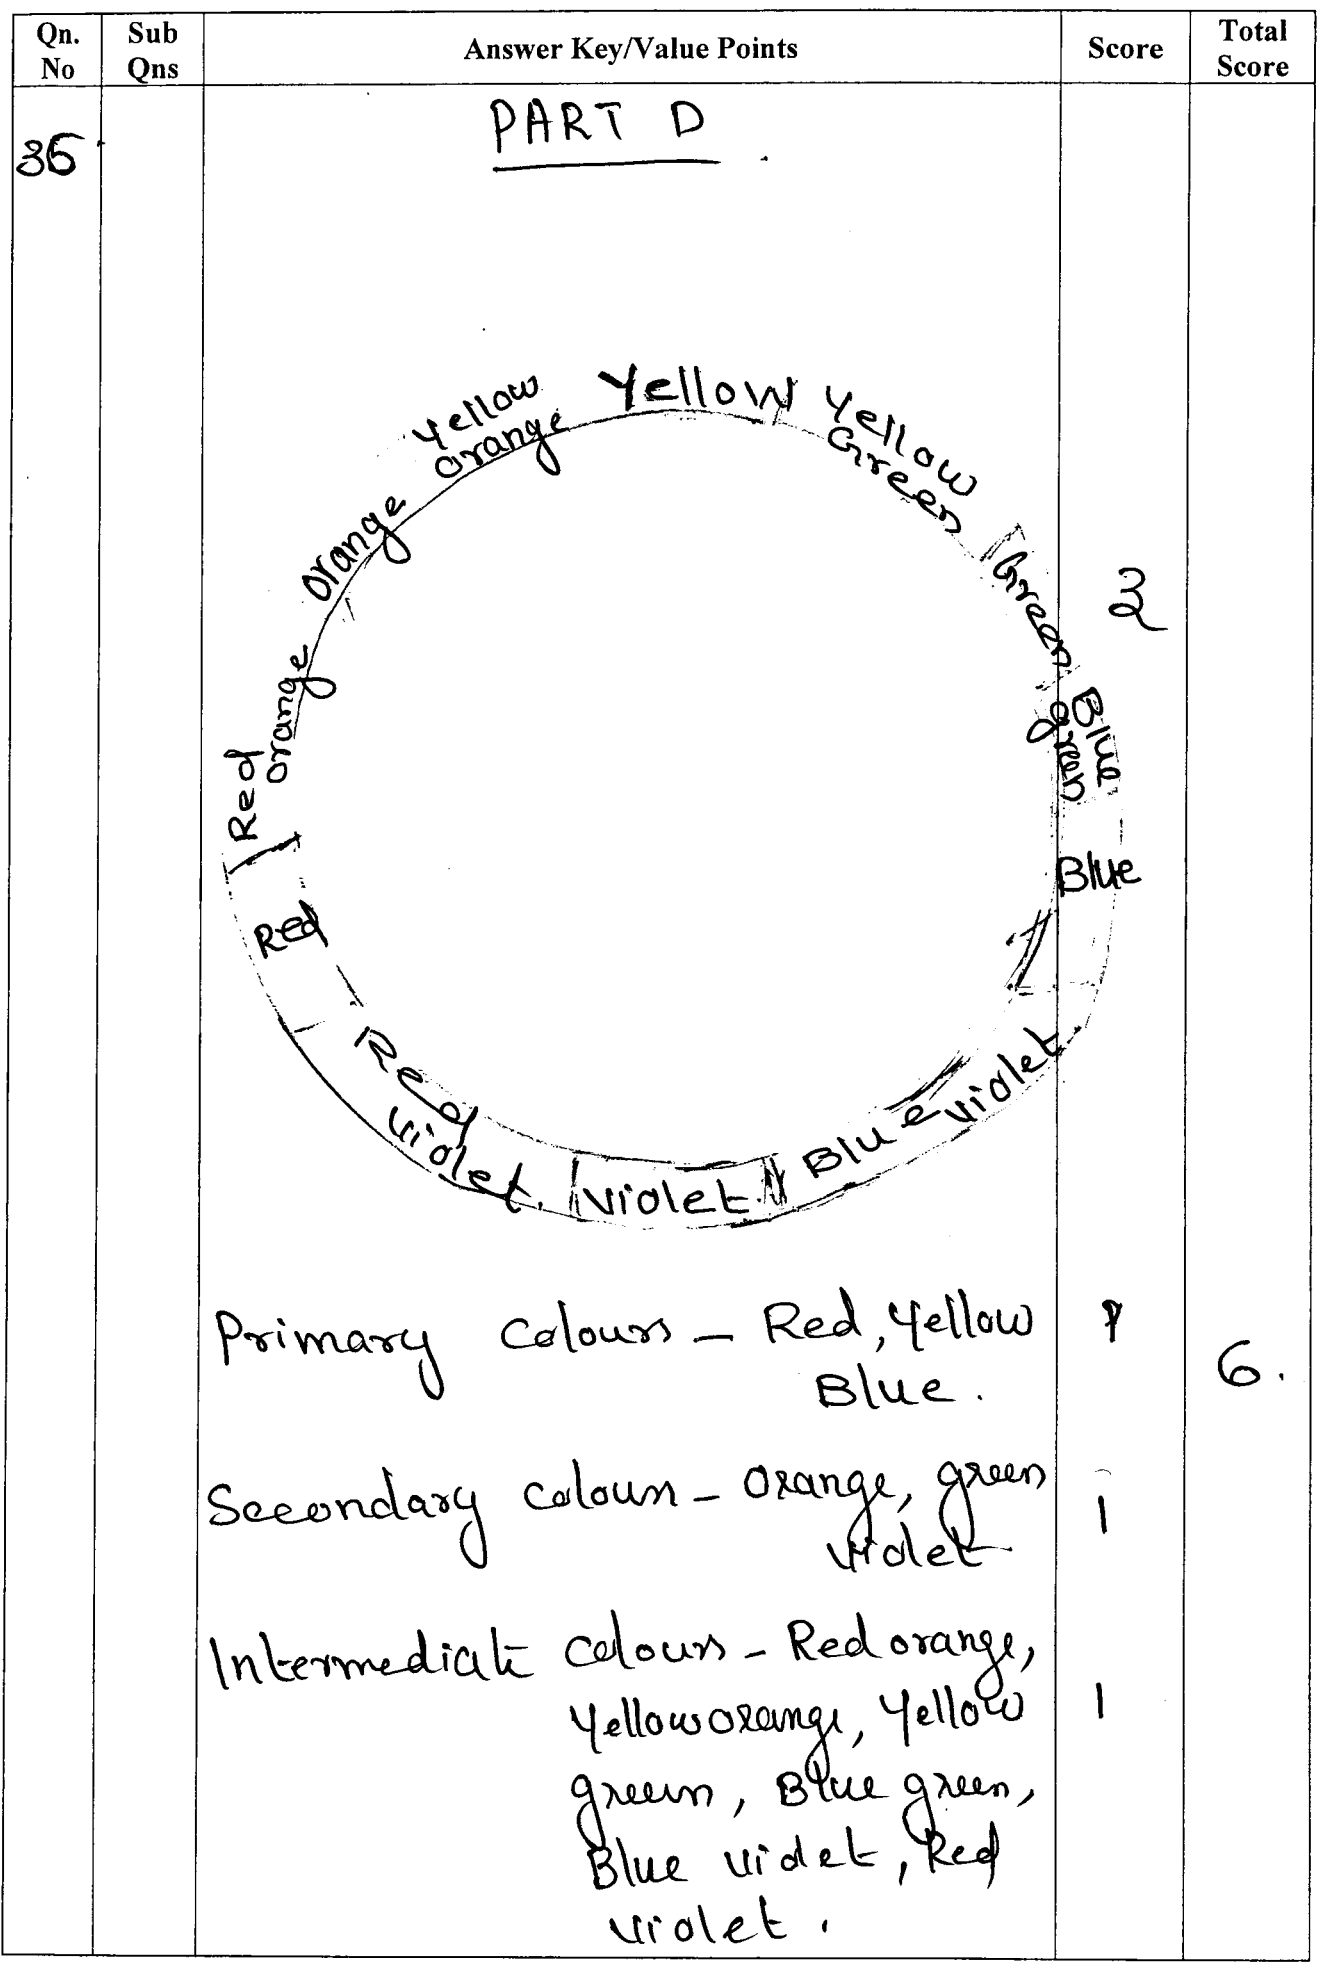 Qn. No Sub Qns Answer Key/Value Points Score Total Score
PART D
36
Yellow
Yellow Green
Green
Blue green
Blue
Blue violet
Violet
Red violet.
Red
Red orange
Orange
Yellow orange
Primary Colours - Red, Yellow 1
Blue. 6.
Secondary colours - Orange, green
violet 1
Intermediate colours - Red orange,
Yellow orange, Yellow 1
green, Blue green,
Blue violet, Red
violet.